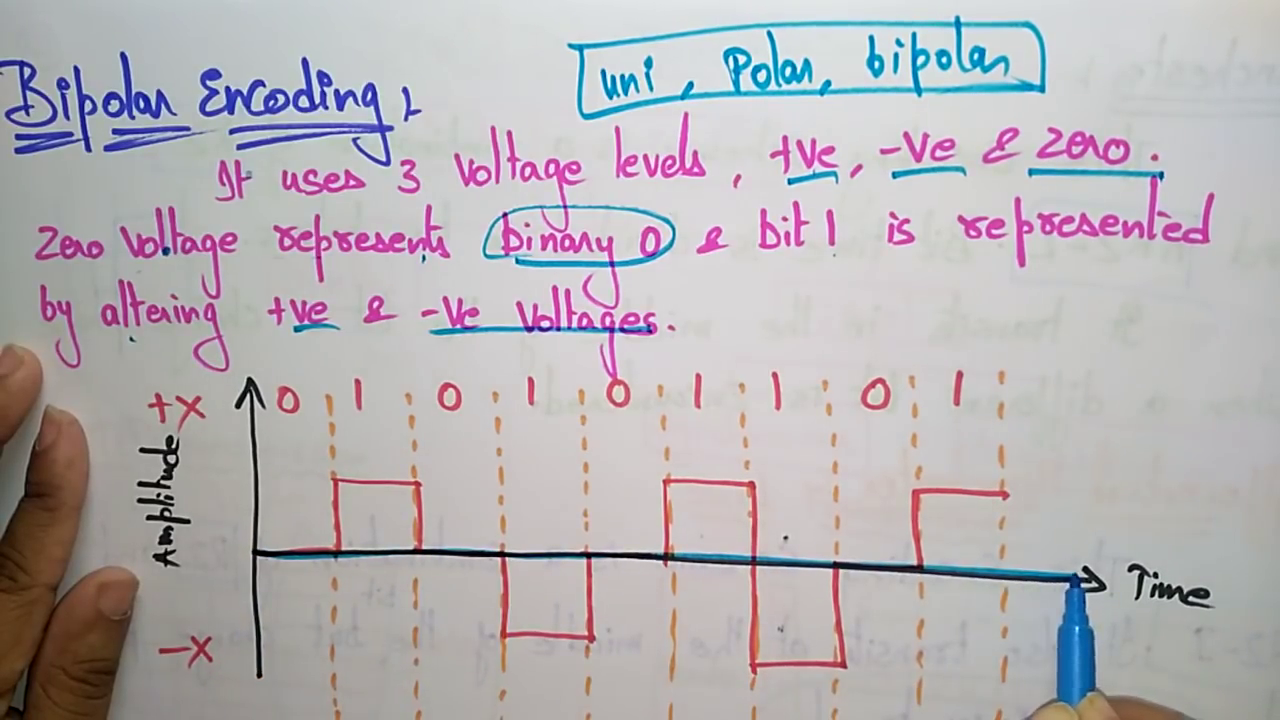 uni, Polar, bipolar
Bipolar Encoding,
It uses 3 voltage levels, +ve, -ve & zero.
Zero voltage represents binary 0 & bit 1 is represented
by altering +ve & -ve voltages.
+X 0 1 0 1 0 1 1 0 1
Amplitude
Time
-X